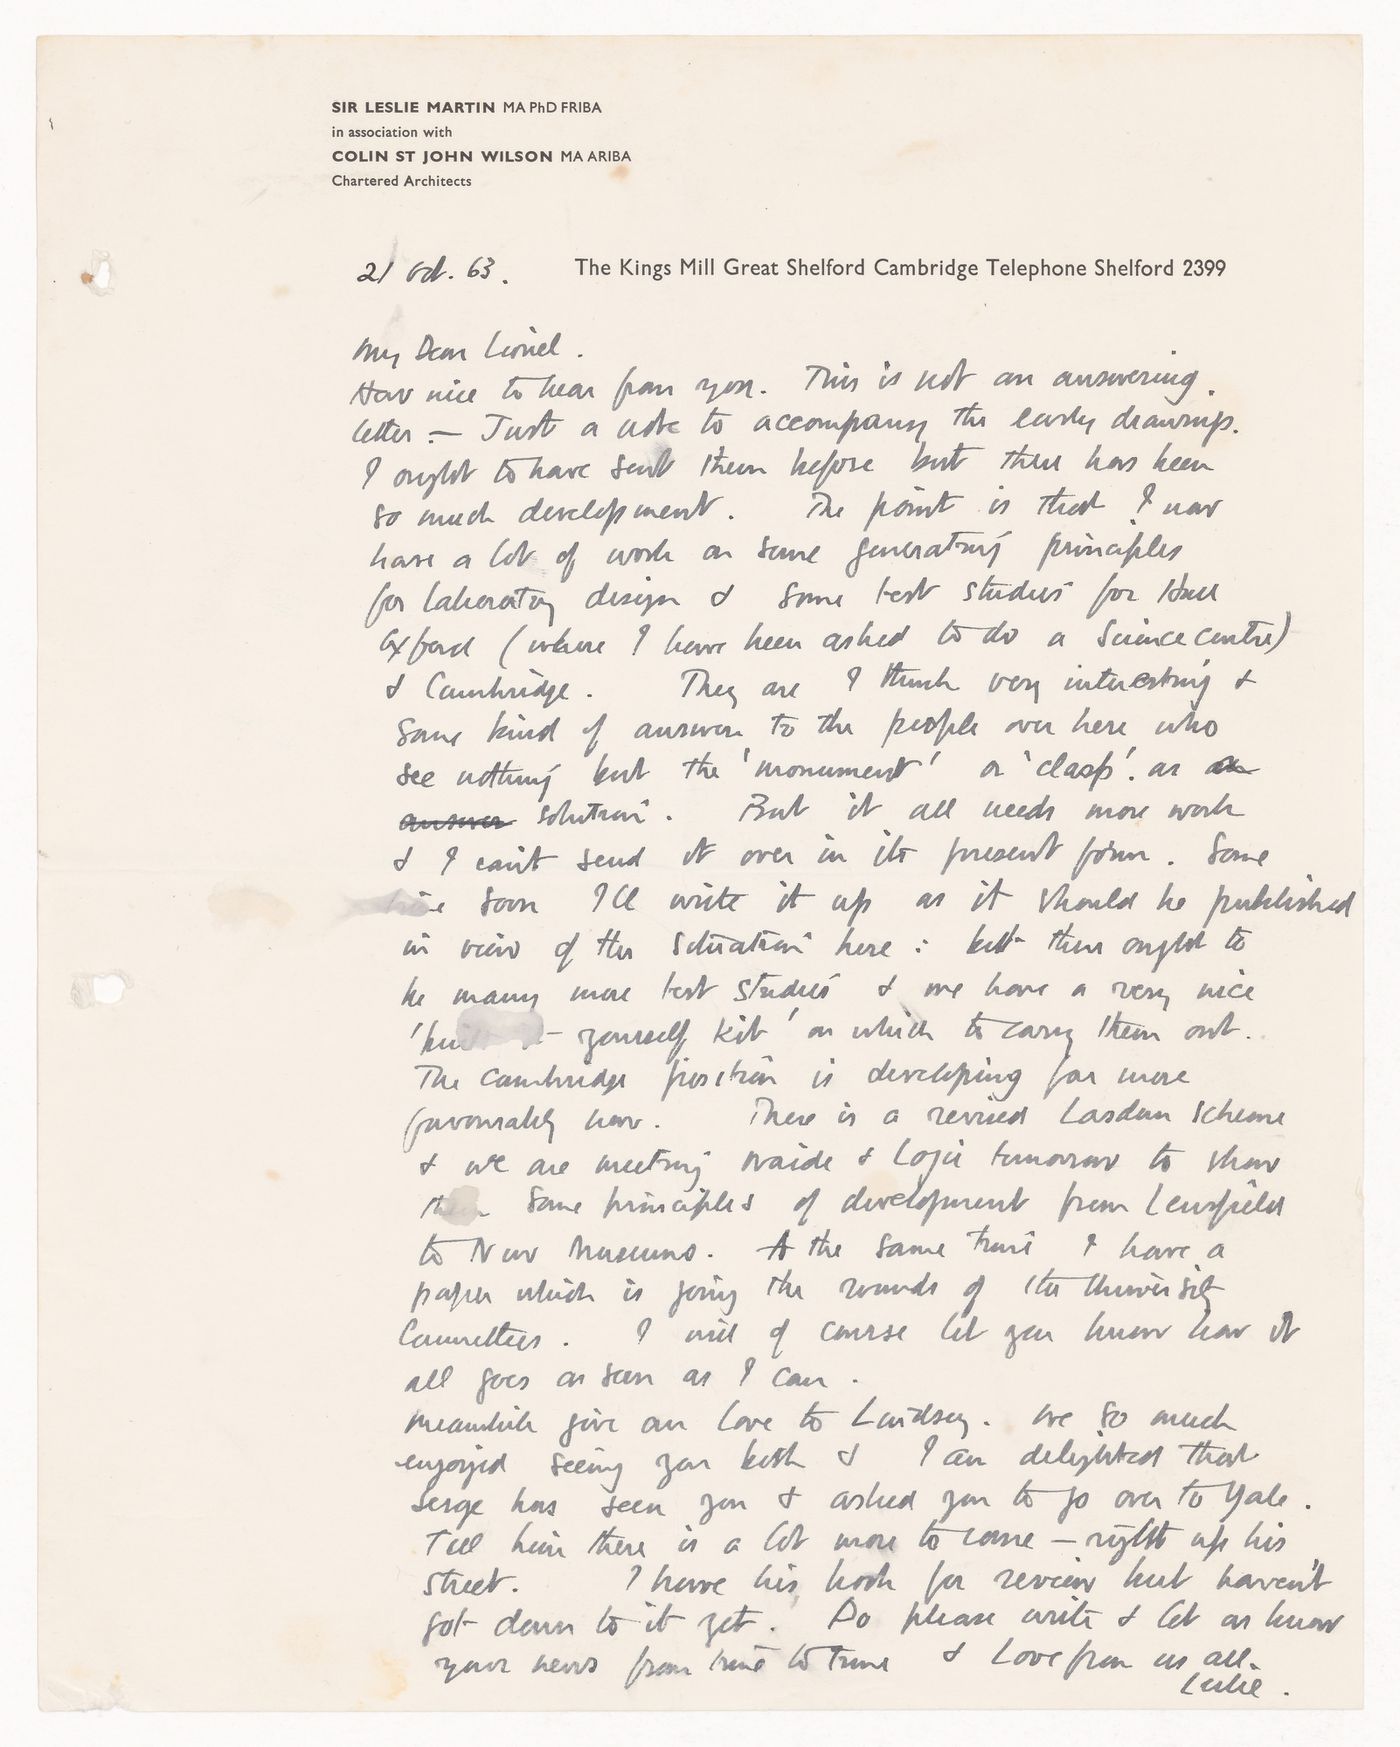 SIR LESLIE MARTIN MA PhD FRIBA
in association with
COLIN ST JOHN WILSON MA ARIBA
Chartered Architects
21 Oct. 63.
The Kings Mill Great Shelford Cambridge Telephone Shelford 2399
My Dear Lionel.
How nice to hear from you. This is not an answering
letter — Just a note to accompany the early drawings.
I ought to have sent them before but there has been
so much development. The point is that I now
have a lot of work on some generating principles
for laboratory design & some test studies for Hull
Oxford (where I have been asked to do a Science centre)
& Cambridge. They are I think very interesting &
some kind of answer to the people over here who
see nothing but the 'monument' or 'clasp'. as an
answer solution. But it all needs more work
& I can't send it over in its present form. Some
time soon I'll write it up as it should be published
in view of the situation here: but there ought to
be many more test studies & we have a very nice
yourself kit' on which to carry them out.
The Cambridge position is developing far more
favourably now. There is a revised Lasdun scheme
& we are meeting & Logie tomorrow to show
them some principles of development from Lensfield
to New Museums. At the same time I have a
paper which is going the rounds of the University
Committees. I will of course let you know how it
all goes as soon as I can.
Meanwhile give our love to Lindsey. We so much
enjoyed seeing you both & I am delighted that
Serge has seen you & asked you to go over to Yale.
Tell him there is a lot more to come — right up his
street. I have his book for review but haven't
got down to it yet. Do please write & let us know
your news from time to time & Love from us all.
Leslie.